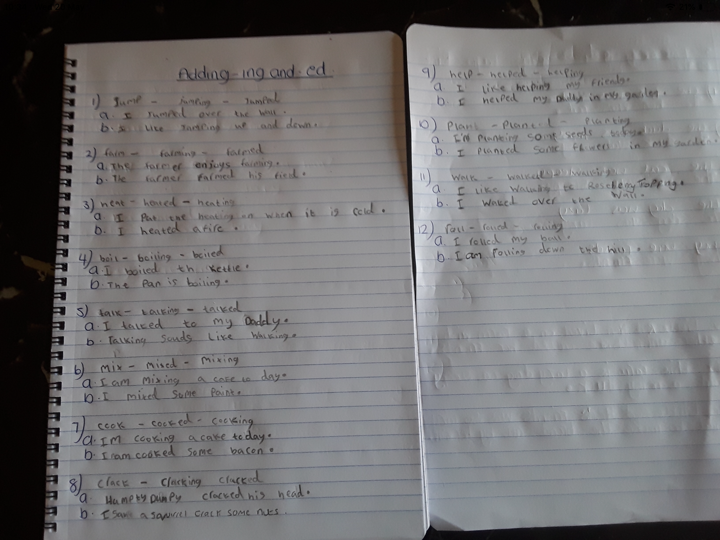 Adding -ing and -ed
1) Jump - Jumping - Jumped
a. I Jumped over the wall.
b. I like Jumping up and down.
2) farm - farming - farmed
a. The farmer enjoys farming.
b. The farmer farmed his
3) heat - heated - heating
a I Put the heating on when it is cold.
b. I heated a fire.
4) boil - boiling - boiled
a. I boiled the kettle.
b. The Pan is boiling.
5) talk - talking - talked
a. I talked to my Daddy.
b. Talking sounds like
6) mix - mixed - mixing
a. I am mixing a cake to day.
b. I mixed some Paint.
7) cook - cooked - cooking
a. I'M cooking a cake today.
b. I am cooked some bacon.
8) crack - cracking cracked
a. Humpty Dumpy cracked his head.
b. I saw a squirrel crack some nuts.
9) help - helped - helping
a I like helping my friends.
b I helped my in the garden.
10) Plant - Planted - Planting
a I'm Planting some seeds
b. I Planted some in my garden.
11) walk - walked - walking
a I like Walking to Roseberry Topping.
b. I Walked over the Wall.
12) roll - rolled - rolling
a. I rolled my ball.
b. I am rolling down the hill.